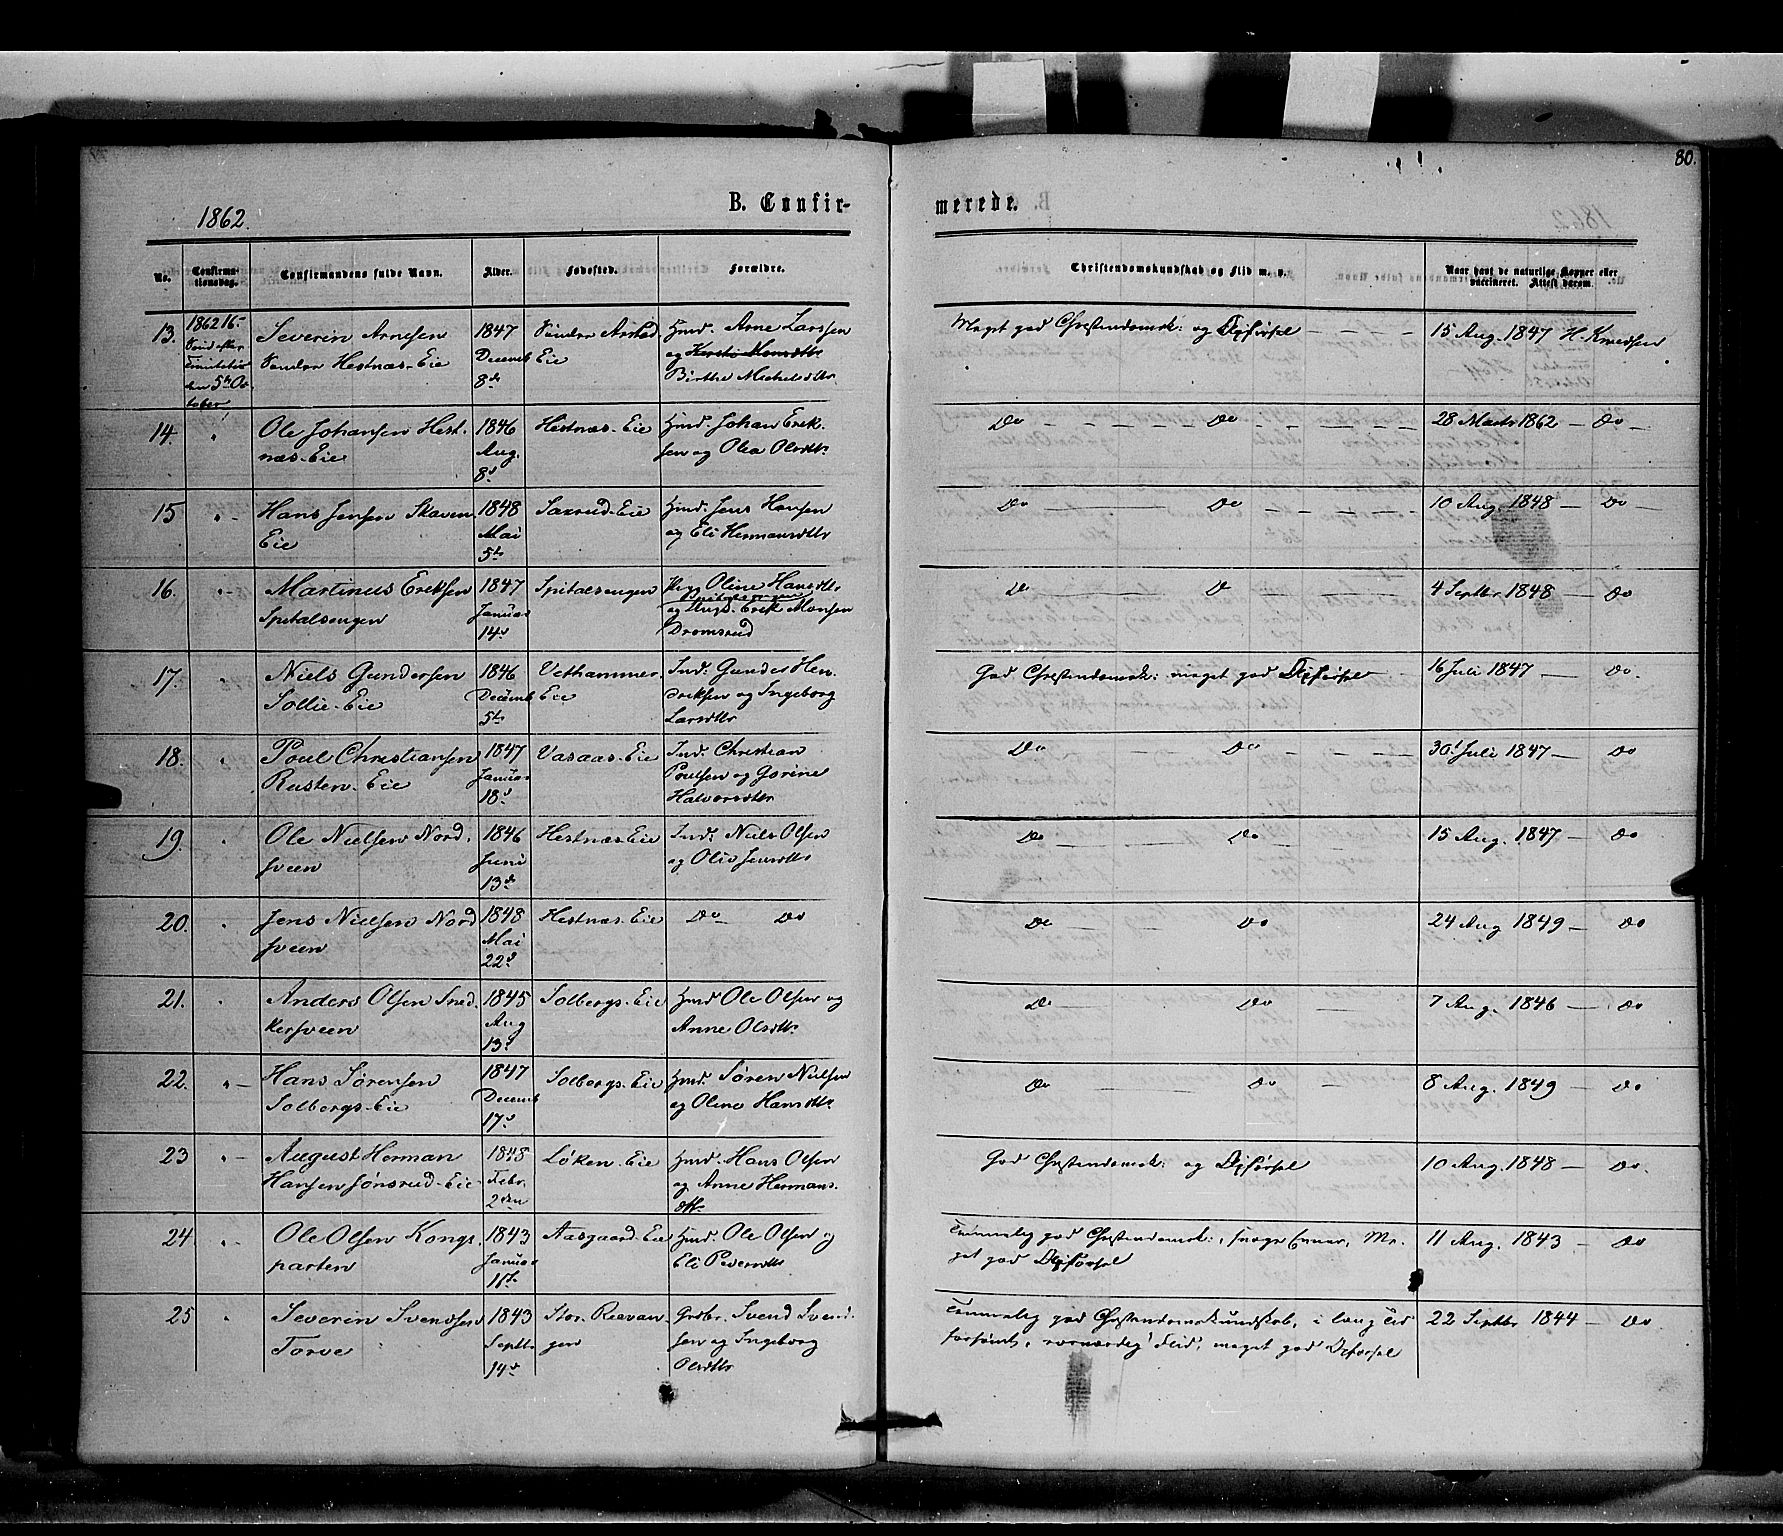 80.
1862.
B. Confir-
merede.
No.
Confirma-
tionsdag.
Confirmandens fulde Navn.
Alder.
Fødested.
Forældre.
Christendomskundskab og Flid m. v.
Naar havt de naturlige Kopper eller
vaccineret. Attest derom.
13.
1862 16-
Trinitatis
den 5te Oc
tober
Severin Arnesen
Søndre Hestnæs-Eie
1847
Decemb
8de
Søndre
Eie
Hmd. Arne Larssen
og Kersti Monsdttr
Birthe Michelsdttr
Meget god Christendomsk: og Opførsel
15 Aug. 1847 H. Knudsen
14.
Ole Johansen Hest-
næs-Eie
1846
Aug.
8d
Hestnæs-Eie
Hmd. Johan Erik-
sen og Olea Olsdttr
Do Do
28 Marts 1862 - Do -
15
Hans Jensen Skaven
Eie
1848
Mai
5te
Saxrud-Eie
Hmd. Jens Hansen
og Eli Hermansdttr
Do Do
10 Aug. 1848 - Do -
16.
Martinus Eriksen
Spitalsengen
1847
Januar
14d
Spitalsengen
Pige Oline Hansdttr
Spitalsengen
og Ungk. Erik Monsen
Dromsrud
Do Do
4 Septbr 1848 - Do
17.
Niels Gundersen
Sollie-Eie
1846
Decemb
5te
Vethammer-
Eie
Ind. Gunder Hen-
driksen og Ingeborg
Larsdttr
God Christendomsk: meget god Opførsel
16 Juli 1847 - Do -
18.
Poul Christiansen
Rusten-Eie
1847
Januar
18d
Vasaas-Eie
Ind. Christian
Poulsen og Gorine
Halvorsdttr
Do Do
30 Juli 1847 - Do
19.
Ole Nielsen Nord-
sveen
1846
Juni
13de
Hestnæs-Eie
Ind. Niels Olsen
og Olia Jensdttr
Do Do
15 Aug. 1847 - Do
20.
Jens Nielsen Nord
sveen
1848
Mai
22d
Hestnæs-Eie
Do Do
Do Do
24 Aug 1849 - Do
21.
Anders Olsen Sned-
kersveen
1845
Aug
13d
Solbergs-Eie
Hmd. Ole Olsen og
Anne Olsdttr
Do Do
7 Aug. 1846 - Do
22.
Hans Sørensen
Solbergs-Eie
1847
Decemb
17d
Solbergs-Eie
Hmd. Søren Nielsen
og Oline Hansdttr
Do Do
8 Aug. 1849 - Do
23
August Herman
Hansen Jønsrud-Eie
1848
Febr.
2den
Løken-Eie
Hmd. Hans Olsen
og Anne Hermans-
dttr
God Christendomsk: og Opførsel
10 Aug. 1848 - Do
24
Ole Olsen Kongs-
parten
1843
Januar
11te
Aasgaard-Eie
Hmd. Ole Olsen og
Eli Pedersdttr
Temmelig god Christendomsk:, svage Evner, Me-
get god Opførsel
11 Aug. 1843 - Do
25
Severin Svendsen
Torve
1843
Septbr
14d
Stor-Reevan-
gen
Grdbr. Svend Svend-
sen og Ingeborg
Olsdttr
Temmelig god Christendomskundskab, i lang Tid
forsømt, rosværdig Flid, meget god Opførsel
22 Septbr 1844 - Do